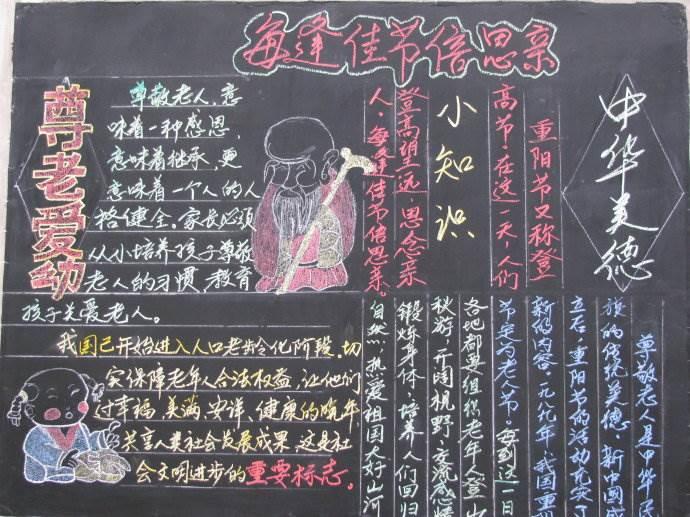 每逢佳节倍思亲
尊老爱幼
尊敬老人,意
味着一种感恩,
意味着继承,更
意味着一个人的人
格健全。家长必须
从小培养孩子尊敬
老人的习惯,教育
孩子关爱老人。
我国已开始进入人口老龄化阶段,切
实保障老年人合法权益,让他们
付幸福、美满、安详、健康的晚年
共享人类社会发展成果,这是社
会文明进步的重要标志。
中华美德
小知识
重阳节又称登
高节,在这一天,人们
登高望远,思念亲
人,每逢佳节倍思亲。
尊敬老人是中华民
族的传统美德,新中国成
立后,重阳节的活动充实了
新的内容,一九八九年,我国重
节定为老人节。每到这一日
各地都要组织老年人登山
秋游,开阔视野,交流感情
锻炼身体,培养人们回归
自然,热爱祖国大好山河